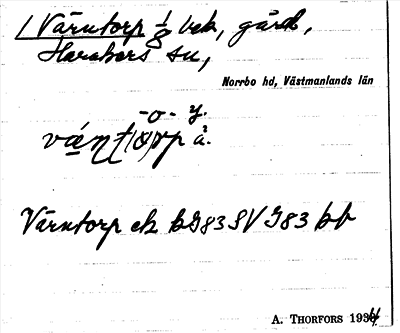 Värntorp 1/8 bek, gård,
Harakers sn,
Norrbo hd, Västmanlands län
-o- y.
Värntorp ek bG83SVG83 bb
A. THORFORS 1934